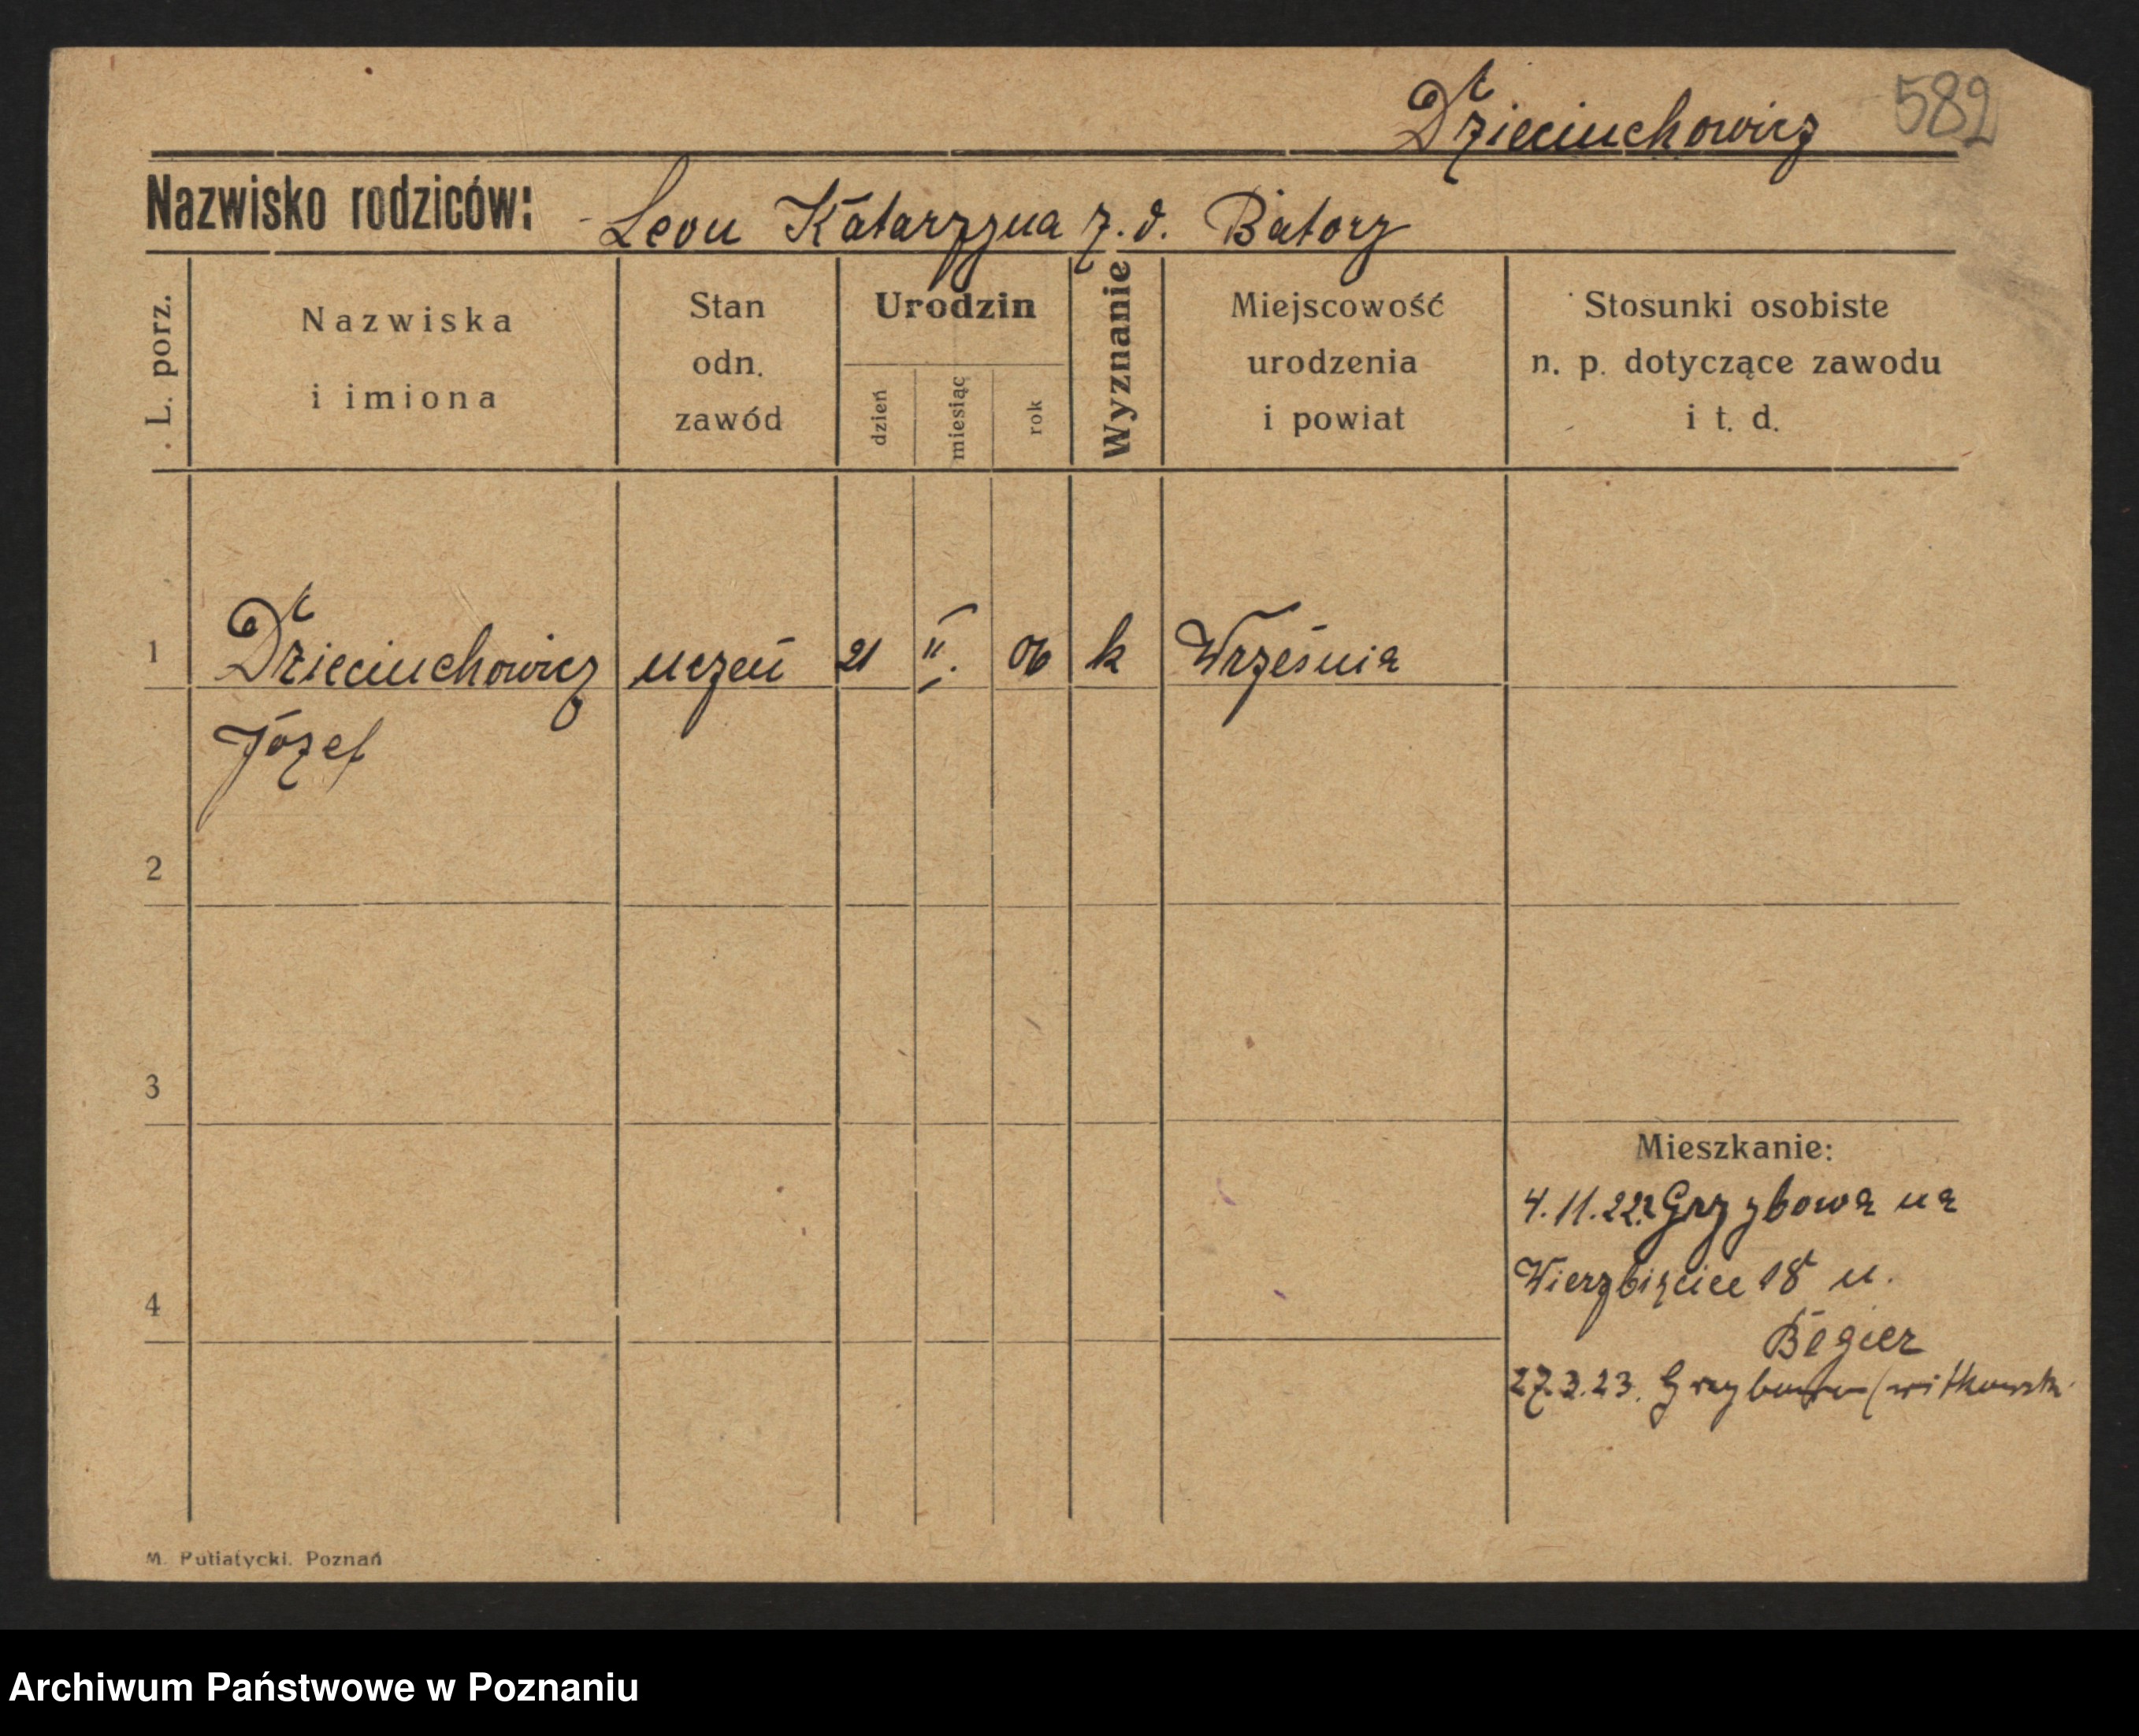 Dzieciuchowicz 582
Nazwisko rodziców: Leon Katarzyna z. d. Batory
L. porz.
Nazwiska
i imiona
Stan
odn.
zawód
Urodzin
dzień
miesiąc
rok
Wyznanie
Miejscowość
urodzenia
i powiat
Stosunki osobiste
n. p. dotyczące zawodu
i t. d.
1 Dzieciuchowicz uczeń 21 II. 06 k Września
Józef
2
3
Mieszkanie:
4.11.22 z Grzybowa na
Wierzbięcice 18 u.
4
Begier
27.3.23. Grzybowo (witkowski
M. Putiatycki, Poznań
Archiwum Państwowe w Poznaniu